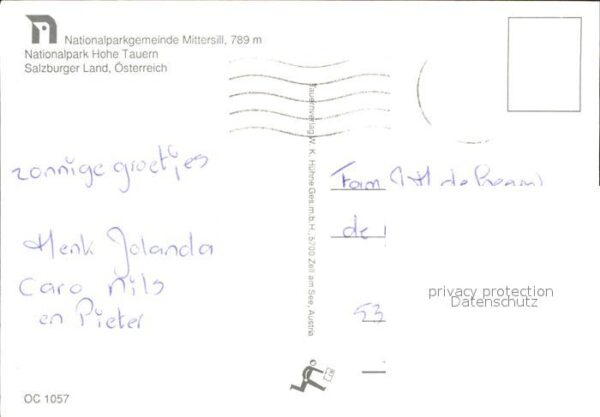 Nationalparkgemeinde Mittersill, 789 m
Nationalpark Hohe Tauern
Salzburger Land, Österreich
zonnige groetjes
Henk Jolanda
Caro Nils
en Pieter
Tauernverlag W. K. Hühne Ges.m.b.H., 5700 Zell am See, Austria
Fam
de
53
privacy protection
Datenschutz
OC 1057